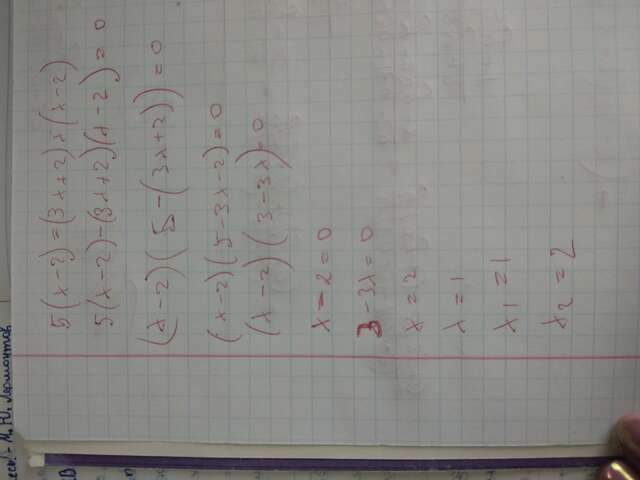 есь! - М. Ю. Лермонтов
5(x-2)=(3x+2)x(x-2)
5(x-2)-(3x+2)(x-2)=0
(x-2)(5-(3x+2))=0
(x-2)(5-3x-2)=0
(x-2)(3-3x)=0
x-2=0
3-3x=0
x=2
x=1
x1=1
x2=2